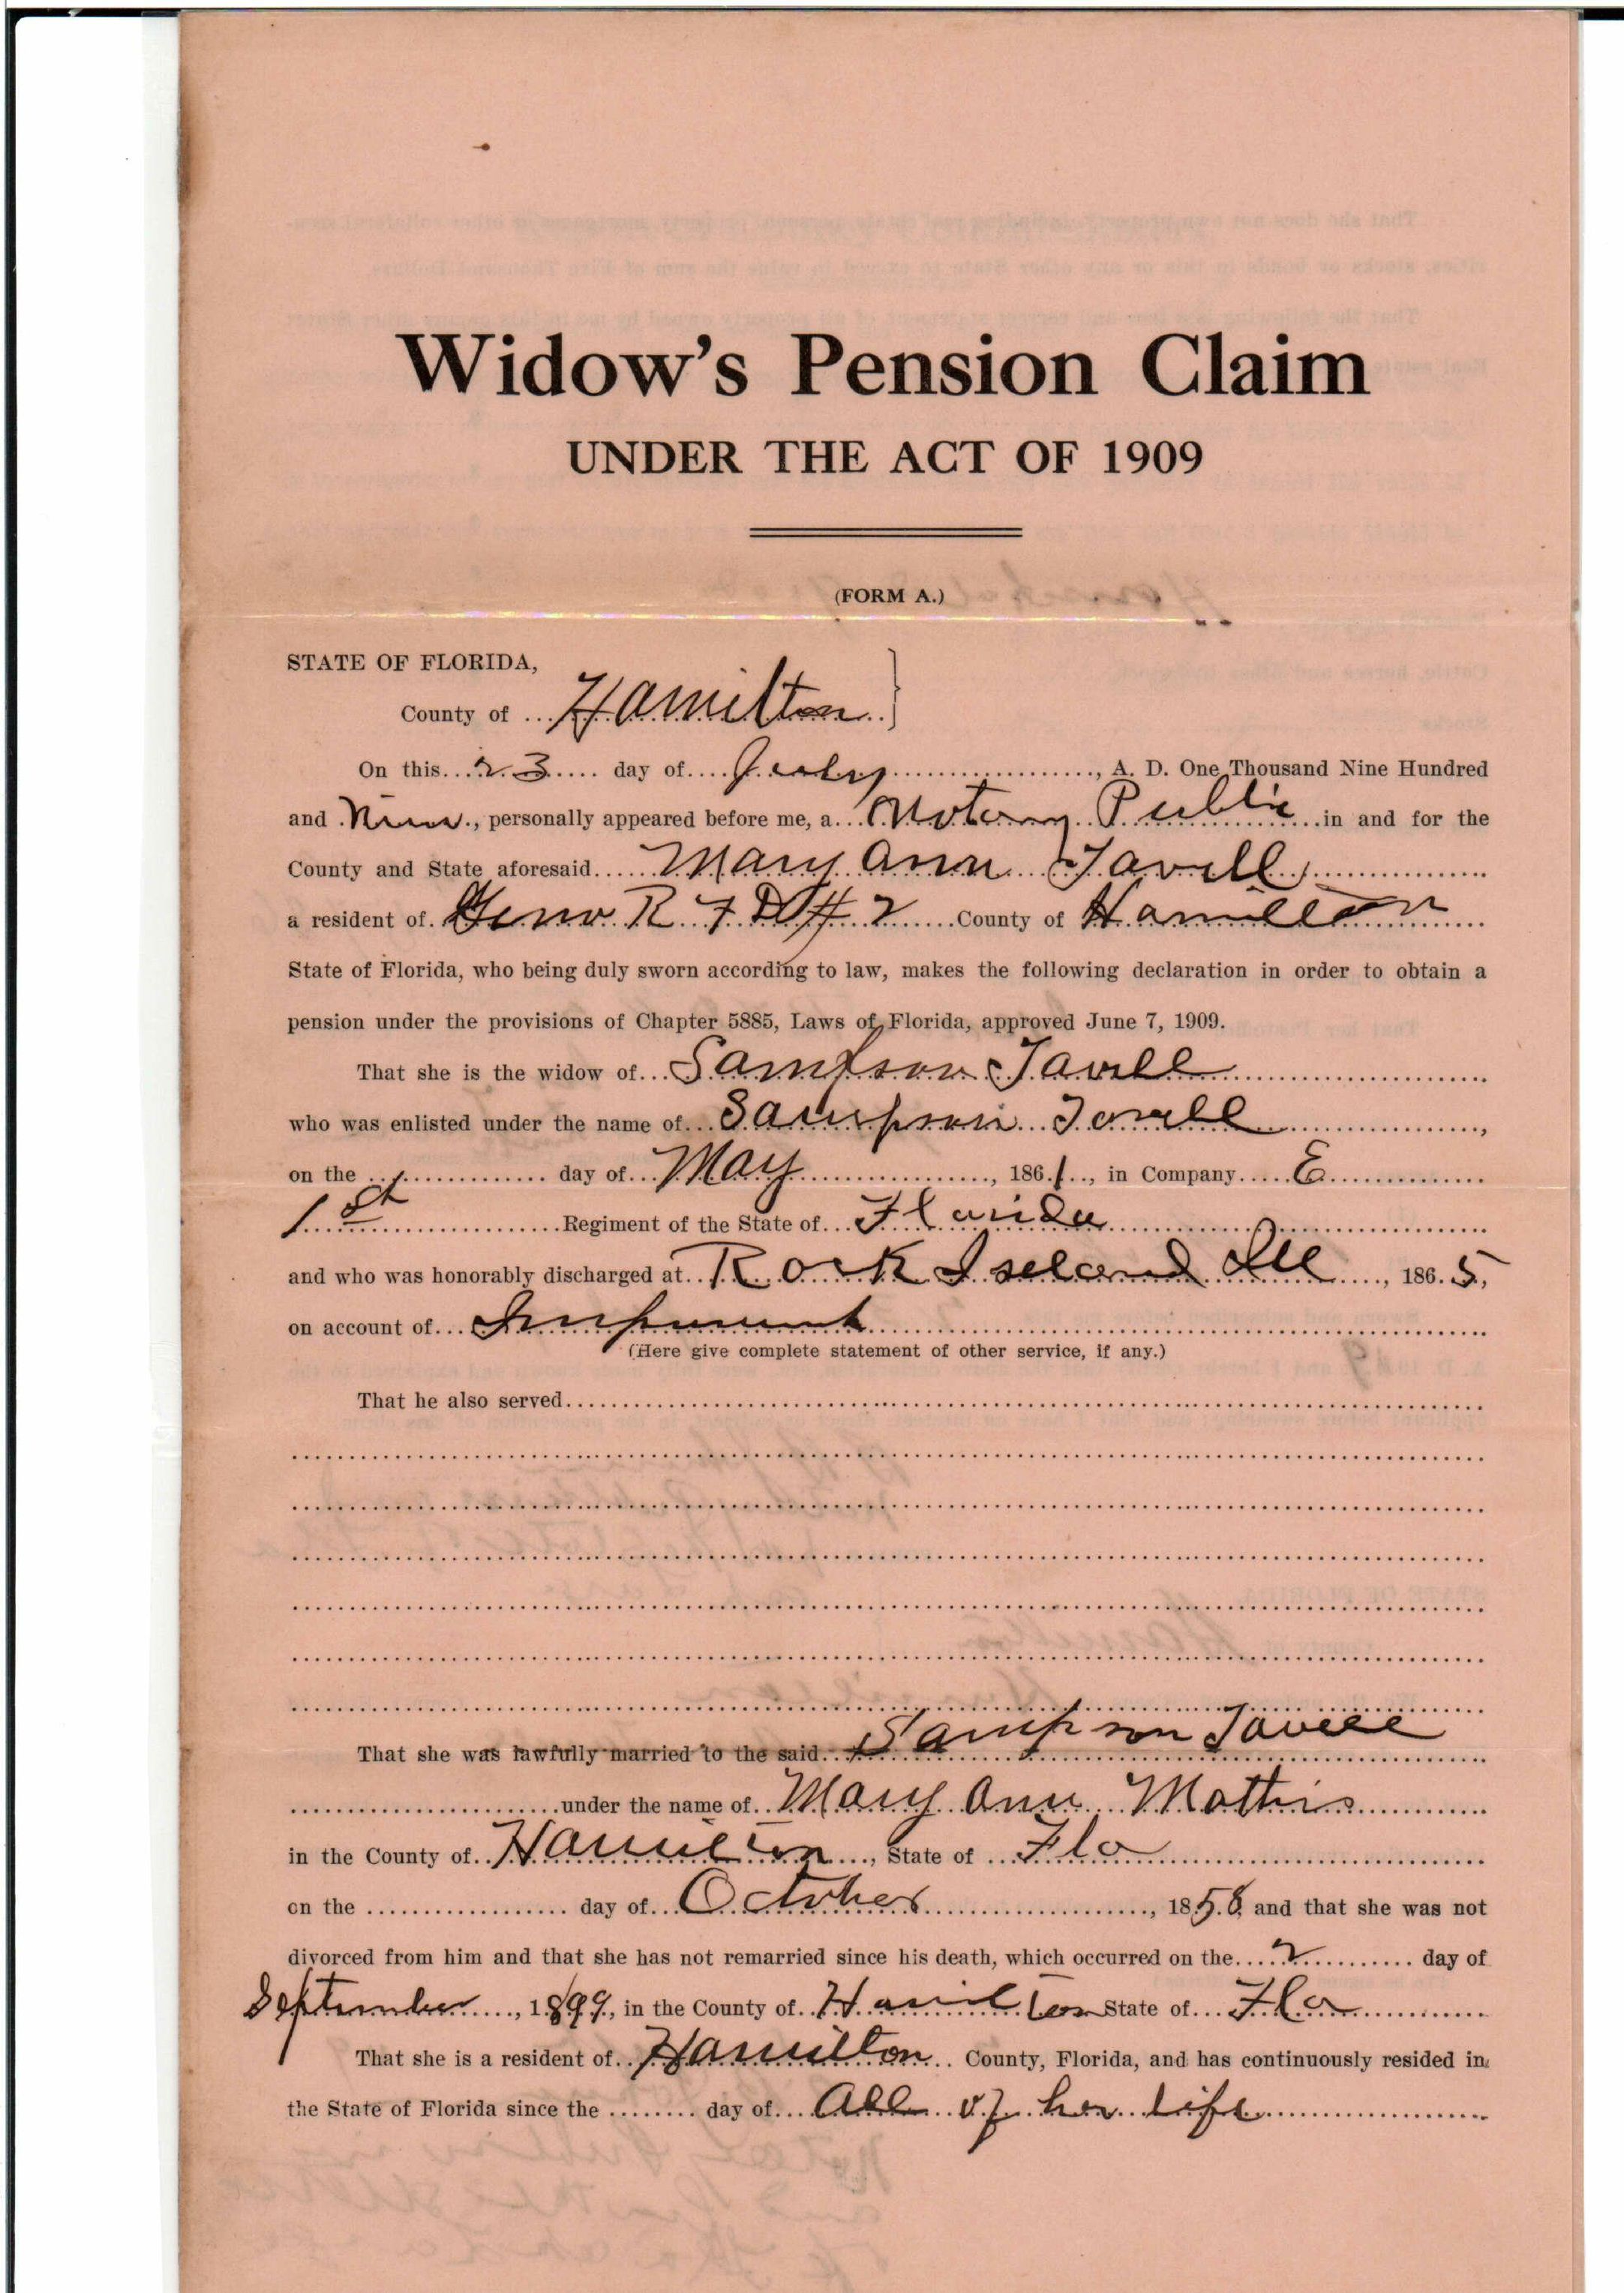 Widow's Pension Claim
UNDER THE ACT OF 1909
(FORM A.)
STATE OF FLORIDA,
County of Hamilton }
On this 23 day of July, A. D. One Thousand Nine Hundred
and Nine, personally appeared before me, a Notary Public in and for the
County and State aforesaid Mary Ann Tavell
a resident of Geno R F D # 2 County of Hamilton
State of Florida, who being duly sworn according to law, makes the following declaration in order to obtain a
pension under the provisions of Chapter 5885, Laws of Florida, approved June 7, 1909.
That she is the widow of Sampson Tavell
who was enlisted under the name of Sampson Tovell,
on the day of May, 1861, in Company E
1st Regiment of the State of Florida
and who was honorably discharged at Rock Iseland Ill, 1865,
on account of
(Here give complete statement of other service, if any.)
That he also served
That she was lawfully married to the said Sampson Tavell
under the name of Mary Ann Mathis
in the County of Hamilton, State of Flo
on the day of October, 1858 and that she was not
divorced from him and that she has not remarried since his death, which occurred on the 2 day of
September, 1899, in the County of Hamilton State of Fla
That she is a resident of Hamilton County, Florida, and has continuously resided in
the State of Florida since the day of All of her life